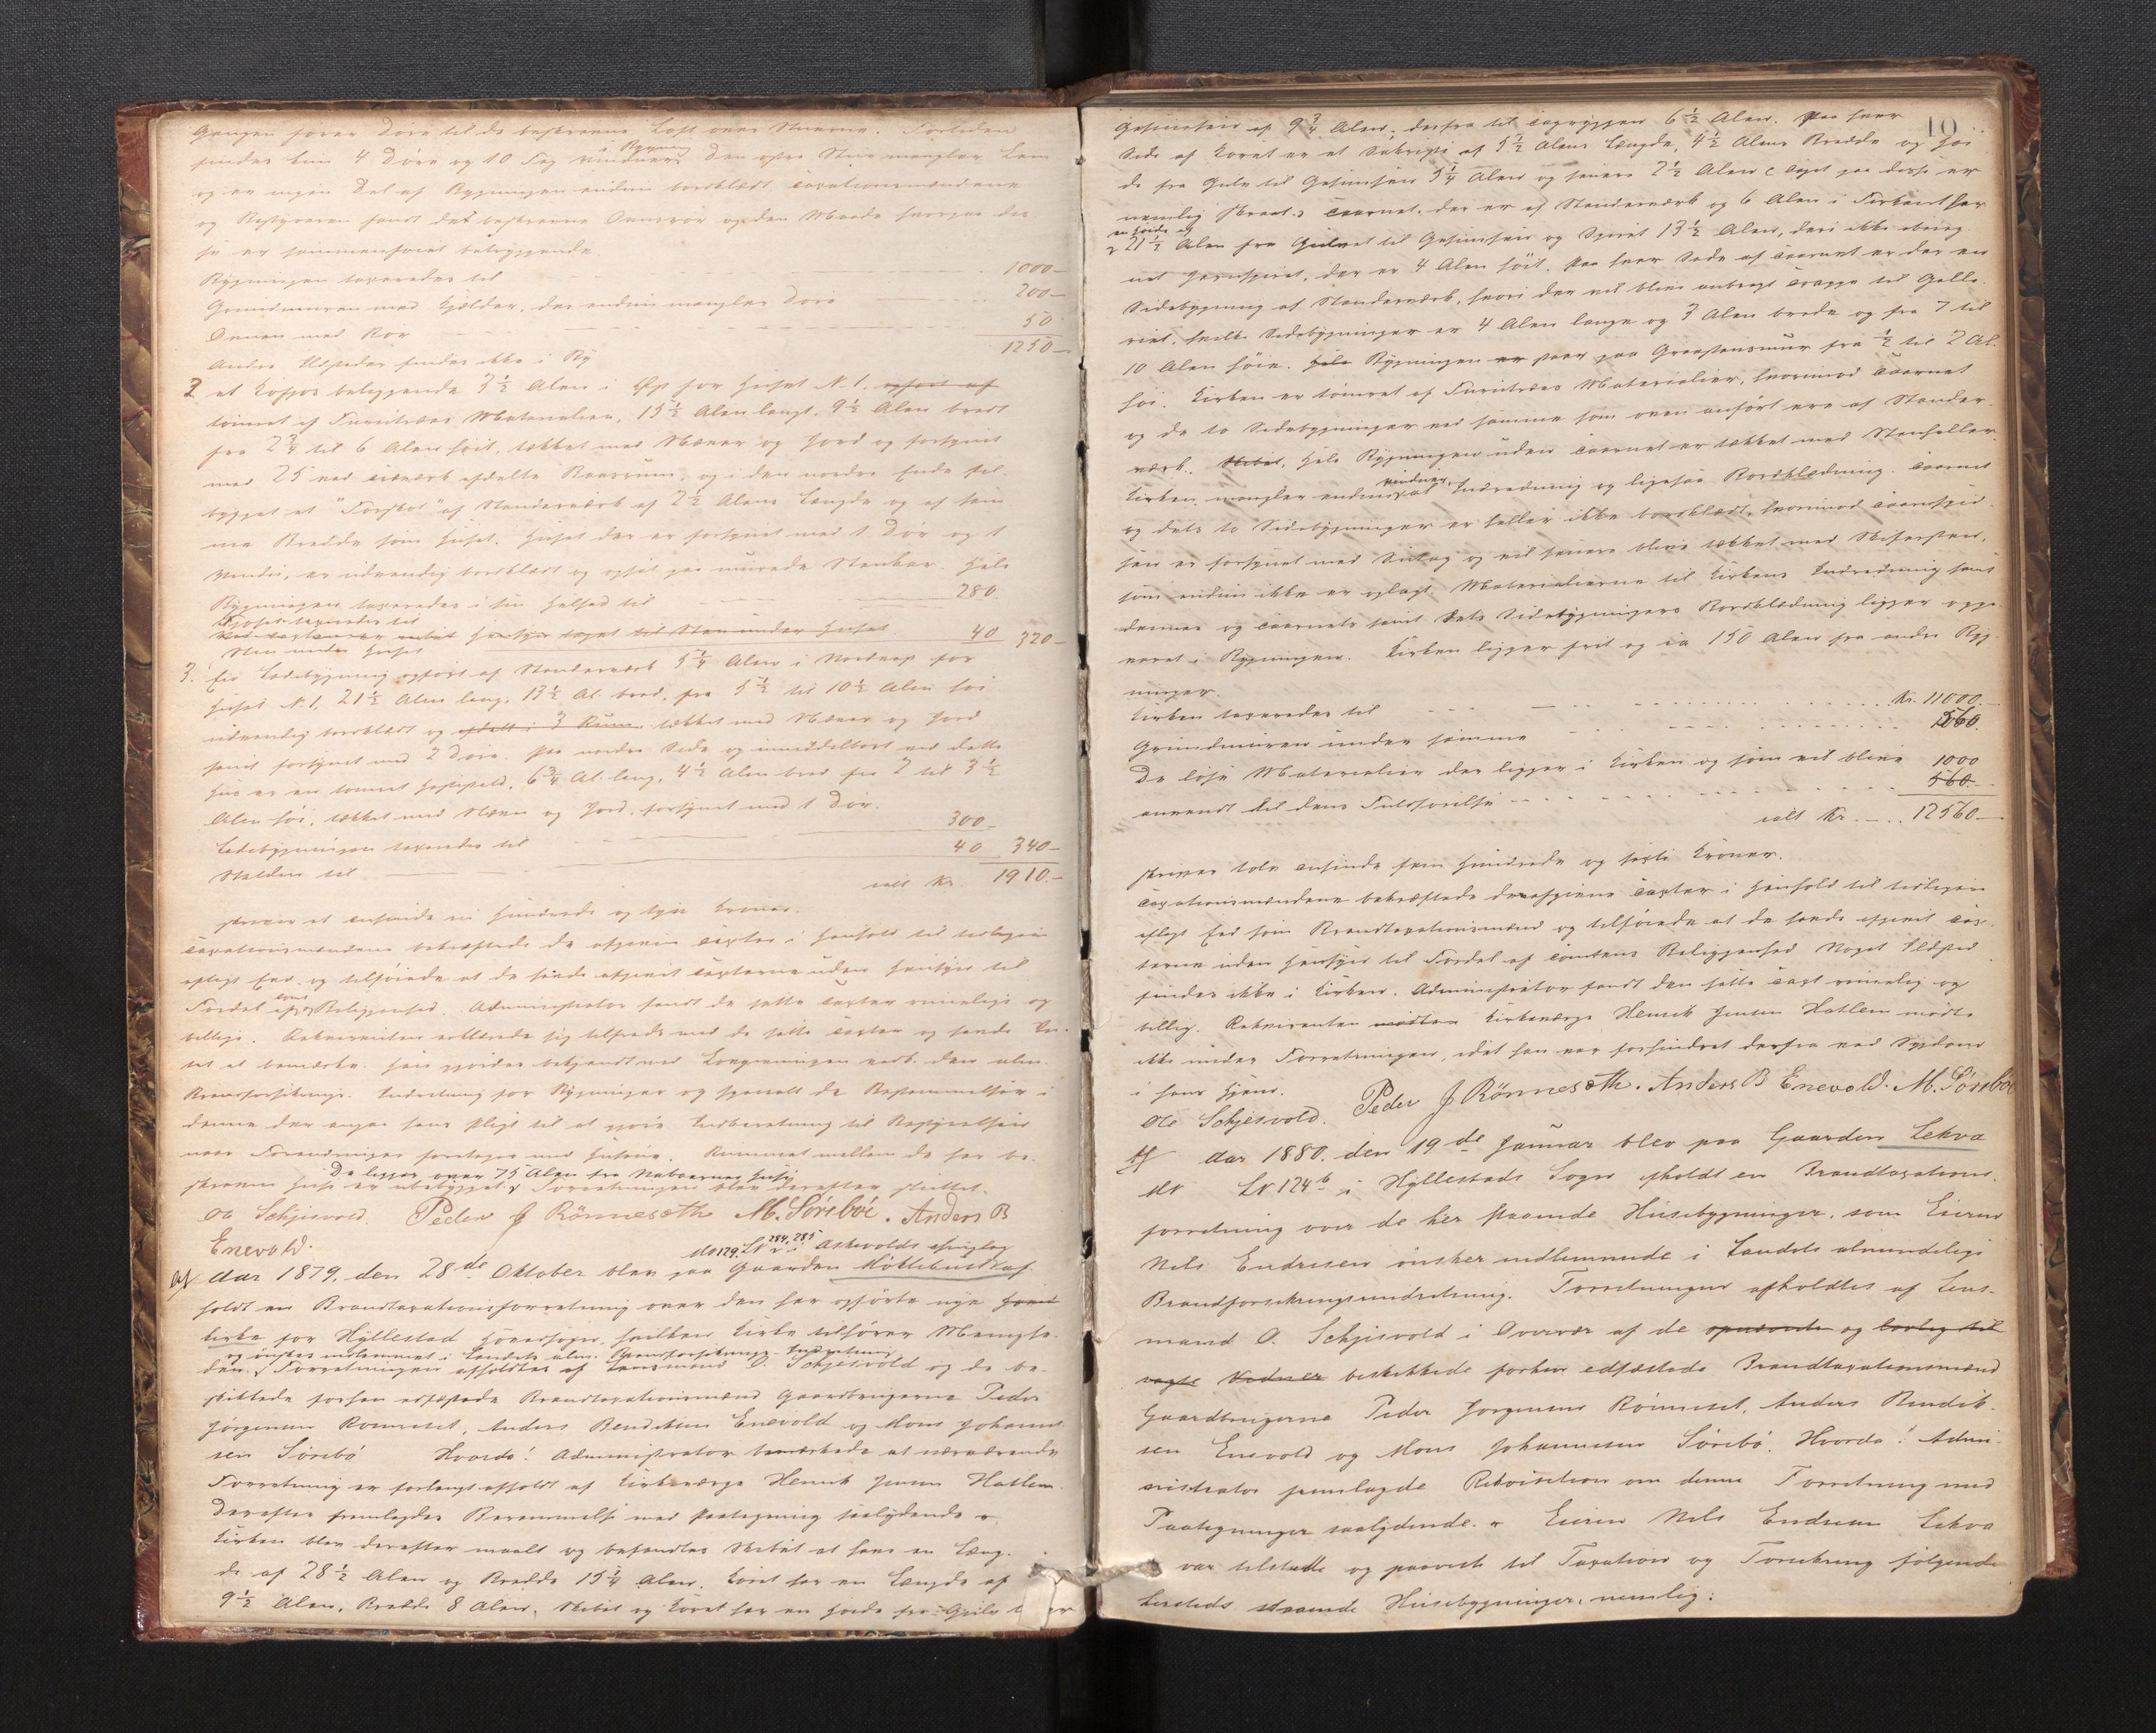 Gangen fører Døre til de beskrevne Loft over Stuerne. Forøvrigt
findes hin 4 Døre og 10 Fag Vinduer i Bygning. Den øfre Stue mangler Lem
og er ingen Del af Bygningen endnu bordklædt. Taxationsmændene
og Bestyreren fandt det beskrevne Ovnsrør og den Maade hvorpaa det
er sammenføiet betryggende.
Bygningen taxeredes til 1000—
Grundmuren med Kjælder, der endnu mangler Dør 200—
Ovnen med Rør 50
Andre Ildsteder findes ikke i By 1250—
2 et Kofjøs beliggende 3 1/2 Alen i Øst for Huset N. 1. opført af
tømret af Furutræes Materialier, 15 1/2 Alen langt, 9 1/2 Alen bredt
fra 2 3/4 til 6 Alen høit, tækket med Næver og Jord og forsynet
med 25 ved Træverk afdelte Baasrum, og i den nordre Ende til
bygget et "Forskot" af Stenderværk af 2 1/2 Alens Længde og af sam
me Bredde som Huset. Huset der er forsynet med 1 Dør og 1
Vindue, er udvendig bordklædt og opsat paa murede Stenkar. Hele
Bygningen taxeredes i sin Helhed til 280
Sten under Huset 40 320—
3. En Ladebygning opført af Stenderværk 5 1/4 Alen i Nordvest for
Huset N. 1, 21 1/2 Alen lang, 13 1/2 Al. bred, fra 5 1/2 til 10 1/2 Alen høi
udvendig bordklædt og afdelt i 3 Rum. tækket med Næver og Jord
samt forsynet med 2 Døre. Paa nordre Side og umiddelbart ved dette
Hus er en tømret Hestestald, 6 3/4 Al. lang, 4 1/2 Alen bred fra 2 til 3 1/2
Alen høi, tækket med Næver og Jord, forsynet med 1 Dør.
Ladebygningen taxeredes til 300—
Stalden til 40 340—
ialt Kr. 1910.—
skriver et tusinde ni hundrede og ti Kroner.
Taxationsmændene bekræftede de afgivne Taxter i Henhold til tidligere
aflagt Eed og tilføiede at de havde afgivet Taxterne uden Hensyn til
Fordel af Tomtens Beliggenhed. Administrator fandt de satte Taxter rimelige og
billige. Rekvirenten erklærede sig tilfreds med de satte Taxter og havde In-
tet at bemærke. Han gjordes bekjendt med Lovgivningen vedk. den alm.
Brandforsikrings. Indretning for Bygninger og specielt de Bestemmelser i
denne der angaa hans Pligt til at gjøre Indberetning til Bestyrelsen
naar Forandringer foretages med Husene. Rummet mellem de her be-
De ligger over 75 Alen fra Naboernes Huse
skrevne Huse er ubebygget. Forretningen blev derefter sluttet.
Ole Schjesvold. Peder J Rönneseth M. Sörebøe. Anders B
Enevold.
M 129. L. N 284, 285 i Askvolds Thinglag
Aar 1879, den 28de Oktober blev paa Gaarden Möklebust af-
holdt en Brandtaxationsforretning over den her opførte nye Hoved
kirke for Hyllestad Hovedsogn, hvilken Kirke tilhører Menighe-
og ønskes indlemmet i Landets alm. Brandforsikrings-Indretning
den. Forretningen afholdtes af Lensmand O. Schjesvold og de be-
skikkede forhen edfæstede Brandtaxationsmænd Gaardbrugerne Peder
Jörgensen Rönneset, Anders Bendiksen Enevold og Mons Johannes
sen Sörebö Hvorda! Administrator bemærkede at nærværende
Forretning er forlangt afholdt af Kirkeværge Henrik Jensen Hatlem.
Derefter fremlagdes Berammelse med Paategning saalydende
Kirken blev derefter maalt og befandtes Skibet at have en Læng-
de af 28 1/2 Alen og Bredde 15 1/4 Alen. Koret har en Længde af
9 1/2 Alen, Bredde 8 Alen. Skibet og Koret har en Høide fra Gulv
19
Gesimsen af 9 3/4 Alen, derfra til Tagryggen 6 1/2 Alen. Paa hver
Side af Koret er et Sakristi af 5 1/2 Alens Længde, 4 1/2 Alens Bredde og Høi
de fra Gulv til Gesimsen 5 1/4 Alen og senere 2 1/2 Alen (Taget paa disse er
nemlig skraat.) Taarnet, der er af Stenderværk og 6 Alen i Firkant har
en Høide af
21 1/2 Alen fra Gulvet til Gesimsen og Spiret 13 1/2 Alen, deri ikke ibereg-
net Jernspiret, der er 4 Alen høit. Paa hver Side af Taarnet er der en
Sidebygning af Stenderværk, hvori der vil blive anbragt Trappe til Galle-
riet, hvilke Sidebygninger er 4 Alen lange og 3 Alen brede og fra 7 til
10 Alen høie. Hele Bygningen er staar paa Graastensmur fra 1/2 til 2 Al.
høi. Kirken er tømret af Furutræes Materialier, hvorimod Taarnet
og de to Sidebygninger ved samme som oven anført ere af Stender-
værk. Skibet, Hele Bygningen uden Taarnet er tækket med Stenheller.
Kirken mangler endnu Vinduer, Indredning og ligesaa Bordklædning. Taarnet
og dets to Sidebygninger er heller ikke bordklædt, hvorimod Taarnspid-
sen er forsynet med Sutag og vil senere blive tækket med Skifersten,
som endnu ikke er oplagt. Materialierne til Kirkens Indredning samt
dennes og Taarnets samt dets Sidebygningers Bordklædning ligger oppe-
varet i Bygningen. Kirken ligger frit og ca 150 Alen fra andre Byg-
ninger.
Kirken taxeredes til Kr. 11000.—
Grundmuren under samme 560.
De løse Materialier der ligger i Kirken og som vil blive 1000
anvendt til dens Fuldførelse 560.—
ialt Kr. 12560—
skriver tolv tusinde fem hundrede og sexti Kroner.
Taxationsmændene bekræftede de afgivne Taxter i Henhold til tidligere
aflagt Eed som Brandtaxationsmænd og tilføiede at de havde afgivet Tax-
terne uden Hensyn til Fordel af Tomtens Beliggenhed. Noget Ildsted
findes ikke i Kirken. Administrator fandt den satte Taxt rimelig og
billig. Rekvirenten mødte Kirkeværge Henrik Jensen Hatlem mødte
ikke under Forretningen, idet han var forhindret derfra ved Sygdom
i hans Hjem.
Ole Schjesvold. Peder J Rönneseth. Anders B Enevold. M. Sörebøe
Aar 1880. den 19de Januar blev paa Gaarden Lekva
M L N 124b i Hyllestads Sogn afholdt en Brandtaxations-
forretning over de her staaende Huusebygninger, som Eieren
Nels Endresen ønsker indlemmede i Landets almindelige
Brandforsikringsindretning. Forretningen afholdtes af Lens-
mand O. Schjesvold i Overvær af de opnævnte og lovlig til
sagte Vidner beskikkede forhen edfæstede Brandtaxationsmænd
Gaardbrugerne Peder Jorgensens Rönneset, Anders Bendik-
sen Enevold og Mons Johannesen Sörebö. Hvorda! Admi-
nistrator fremlagde Rekvisition om denne Forretning med
Paategninger saalydende. Eieren Nels Endresen Lekva
var tilstede og paaviste til Taxation og Forsikring følgende
hersteds staaende Huusebygninger, nemlig: